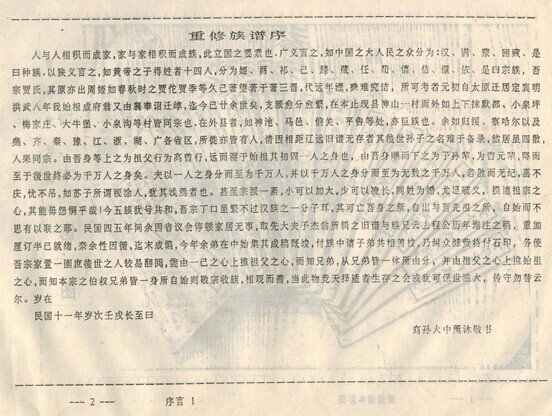 重修族谱序
人与人相积而成家,家与家相积而成族,此立国之要素也。广义言之,如中国之大人民之众分为:汉、满、蒙、回藏、是
曰种族。以狭义言之,如黄帝之子得姓者十四人,分为姬、酉、祁、己、滕、葴、任、荀、僖、姞、儇、依、是曰宗族,吾
宗贾氏,其原亦出周姬如春秋时之贾佗贾季等久已著望著于晋三晋,代远年湮,殊难究诘,所可考者元初自大原迁居定襄明
洪武八年我始祖成府翁又由襄奉诏迁崞,迄今已廿余世矣,支派愈分愈繁,在本止现县神山一村而外如上下
梅家庄、大牛堡、小泉沟等村皆同宗也,在外县者,如神池、马邑、偏关、平鲁等处,亦巨族也。余如归绥、察哈尔以及
燕、齐、秦、豫、江、浙、湖、广各省区,所徙亦皆有人,情因相距辽远旧谱无存者其后世孙子之名难于备录,
人果同宗。由吾身等上之为祖父行为高曾行,远而溯于始祖其初俱一人之身也,由吾身顺而下之为于孙辈,为曾元辈,降而
至于后世终必为千万人之身矣。夫以一人之身分而至为千万人,并以千万人之身分而至为无数之千万人,若散而无纪,喜不
庆,忧不吊,如苏子所谓视涂人,犹其浅焉者也。甚至宗族一紊,小可以加大,少可以陵长,同姓为婚,尤足破久,损渎祖宗之
心,其能毋怨恫乎哉!今五族犹号共和,吾宗丁口虽繁不过汉族之一分子耳,其可亡吾身之所,自出与吾先祖之所,自始而不
思有以联之耶。民国四五年间余因省议会停顿家居无事,取先大夫子杰翁所辑之旧谱与族兄云上程公历年增注之稿,重加
厘订半已就绪,奈余性因循,迄未成编,今年余弟在中始集其成稿既竣,付族中诸子弟共相善校,乃纠众醵赀将付石印,务使
吾宗家置一函庶后世之人易翻阅,能由一己之心上推祖父之心,而知兄弟,从兄弟皆一体所由分,并由祖父之心上推始祖
之心,而知本宗之伯叔兄弟皆一身所自始则敬宗收族,相观而善,当此物竞天择适者生存之会或犹可保世滋大,传守勿替云
尔。岁在
民国十一年岁次壬戌长至日
裔孙大中薰沐敬书
--- 2 --- 序言 1